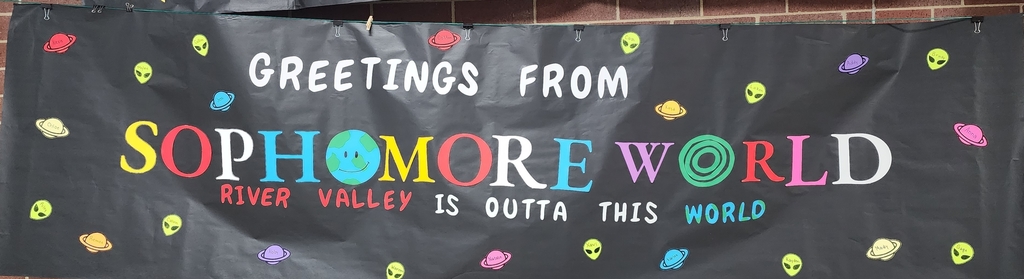 GREETINGS FROM
SOPHOMORE WORLD
RIVER VALLEY IS OUTTA THIS WORLD